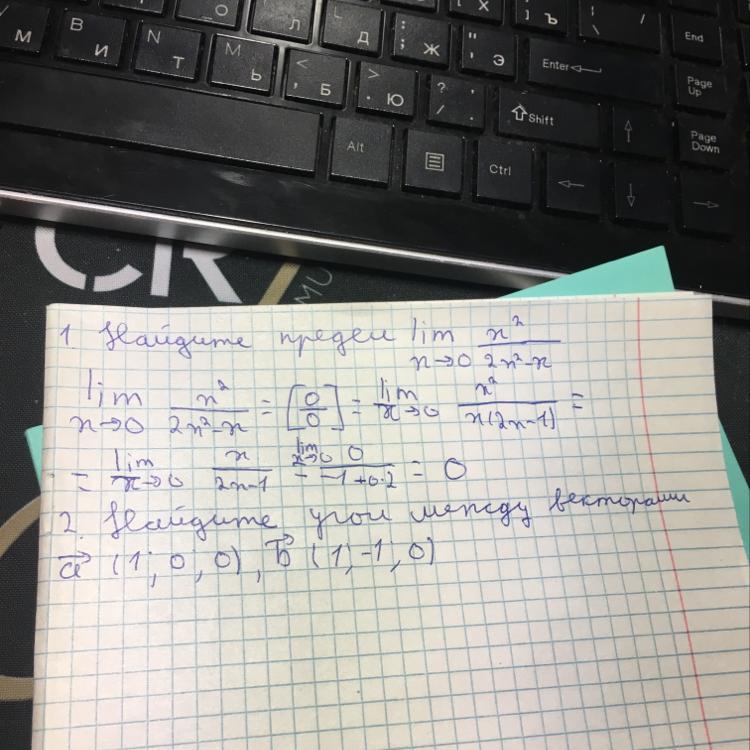 O Л Д X Ъ \ /
М В И N Т M Ь < , Б > . Ю : ; Ж " ' Э Enter End
? / . Shift Page Up
Alt Ctrl Page Down
CR
MU
1. Найдите предел lim x→0 x²/(2x²-x)
lim x→0 x²/(2x²-x) = [0/0] = lim x→0 x²/(x(2x-1)) =
= lim x→0 x/(2x-1) = lim x→0 0/(-1+0·2) = 0
2. Найдите угол между векторами
a⃗ (1; 0; 0), b⃗ (1; -1; 0)